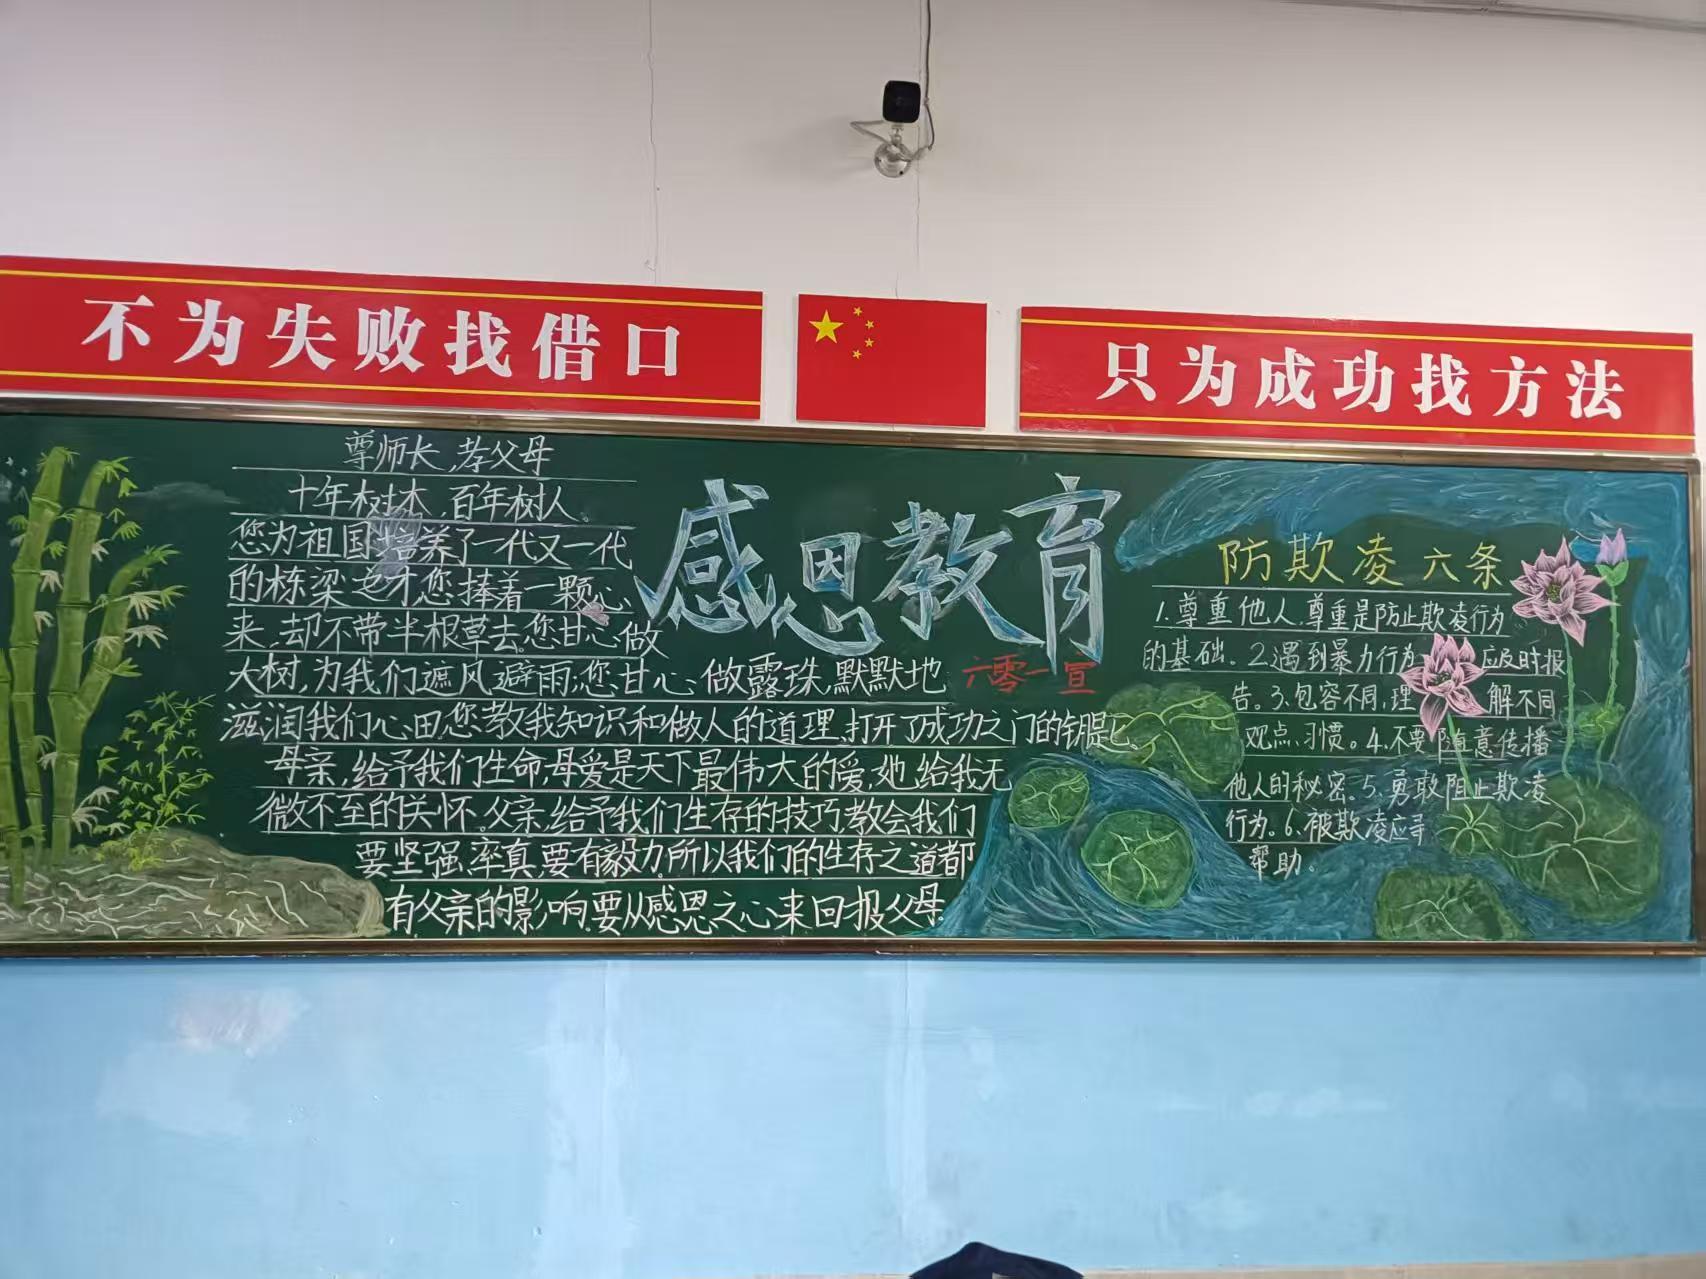 不为失败找借口
只为成功找方法
尊师长,孝父母
十年树木,百年树人。
您为祖国培养了一代又一代
的栋梁也才您捧着一颗心
来,却不带半根草去。您甘心做
大树,为我们遮风避雨;您甘心做露珠,默默地
滋润我们心田,您教我知识和做人的道理,打开了成功之门的钥匙。
母亲,给予我们生命,母爱是天下最伟大的爱,她给我无
微不至的关怀。父亲,给予我们生存的技巧教会我们
要坚强,率真,要有毅力,所以我们的生存之道都
有父亲的影响,要从感恩之心来回报父母.
感恩教育
六零一宣
防欺凌六条
1.尊重他人,尊重是防止欺凌行为
的基础。2.遇到暴力行为应及时报
告。3.包容不同,理解不同
观点、习惯。4.不要随意传播
他人的秘密。5.勇敢阻止欺凌
行为。6.被欺凌应寻
帮助。